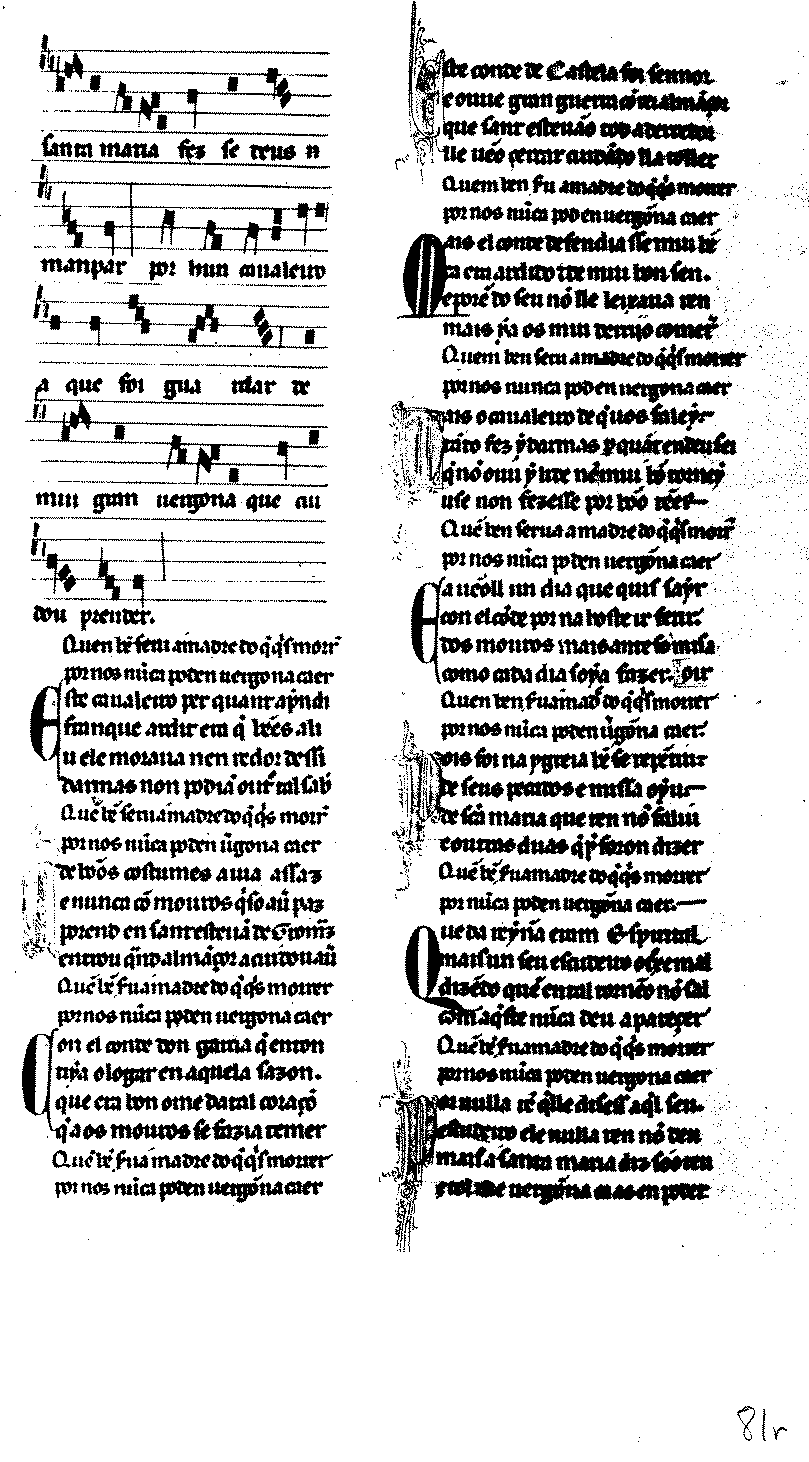 santa maria fez se deus m
manpar por hun caualeiro
a que foi gua rdar de
mui gram uergonna que cu
dou prender.
Quen bẽ seru a madre do q̇ q̇s morr̃
por nos nũca poden uergonna caer
Este caualeiro per quant ap̃ndi
franque ardit era q̇ bẽes ali
u ele moraua nen redor dessi
darmas non podiã outr̃ tal sab̃
Quẽ bẽ seru a madre do q̇ q̇s morr̃
por nos nũca poden ũgonna caer
De bõos costumes auia assaz
e nunca cõ mouros q̇so auer paz
porend en sant esteuã de Gormaz
entrou q̇ndo almãçor a cuidou auer
Quẽ bẽ seru a madre do q̇ q̇s morrer
por nos nũca poden uergonna caer
Con el conde don garcia q̇ enton
tĩya o logar en aquela sazon.
que era bon ome de atal coraçõ
q̇ aos mouros se fazia temer
Quẽ bẽ seru a madre do q̇ q̇s morrer
por nos nũca poden uergonna caer
Este conde de Castela foi sennor
e ouue gran guerra cõ rei almãçor
que sant esteuão tod a derredor
lle uẽo çercar cuidãdo lla toller
Quem ben seru a madre do q̇ q̇s morrer
por nos nũca poden uergõna caer
Mais el conde defendia sse mui bẽ
ca era ardido e de mui bon sen.
e porẽ do seu nõ lle leixaua ren
mais ỹa os mui derrijo cometer
Quem ben seru a madre do q̇ q̇s morrer
por nos nunca poden uergonna caer
Mais o caualeiro de q̇ uos faley
tãto fez y darmas per quãt end eu sei
q̇ nõ ouu y lide nẽ mui bõ torney
u se non fezesse por bõo tẽer
Quẽ ben seru a a madre do q̇ q̇s morr̃
por nos nũca poden uergonna caer
E aueolle un dia que quis sayr
con el cõde por na hoste ir ferir
dos mouros mais ante foi missa
como cada dia soya fazer. oir
Quen ben seru a mad̃ do q̇ q̇s morrer
por nos nũca poden ũgõna caer.
Pois foi na ygreia bẽ se repentiu
de seus pecados e missa oyu
de scã maria que ren nõ faliu
e outras duas q̇ y foron dizer
Quẽ bẽ seru a madre do q̇ q̇s morrer
por nũca poden uergõna caer.
Que da reỹna eram Espirital
mais un seu escudeiro o trouxe mal
dizẽdo quẽ en tal torneo nõ sal
com aq̇ste nũca deu a pareçer
Quẽ bẽ seru a madre do q̇ q̇s morrer
por nos nũca poden uergõna caer
Por nulla rẽ q̇ lle dissess aq̇l seu.
escudeiro ele nulla ren nõ deu
mais a santa maria diz sõo teu
e tol me uergõna ca as en poder
81r